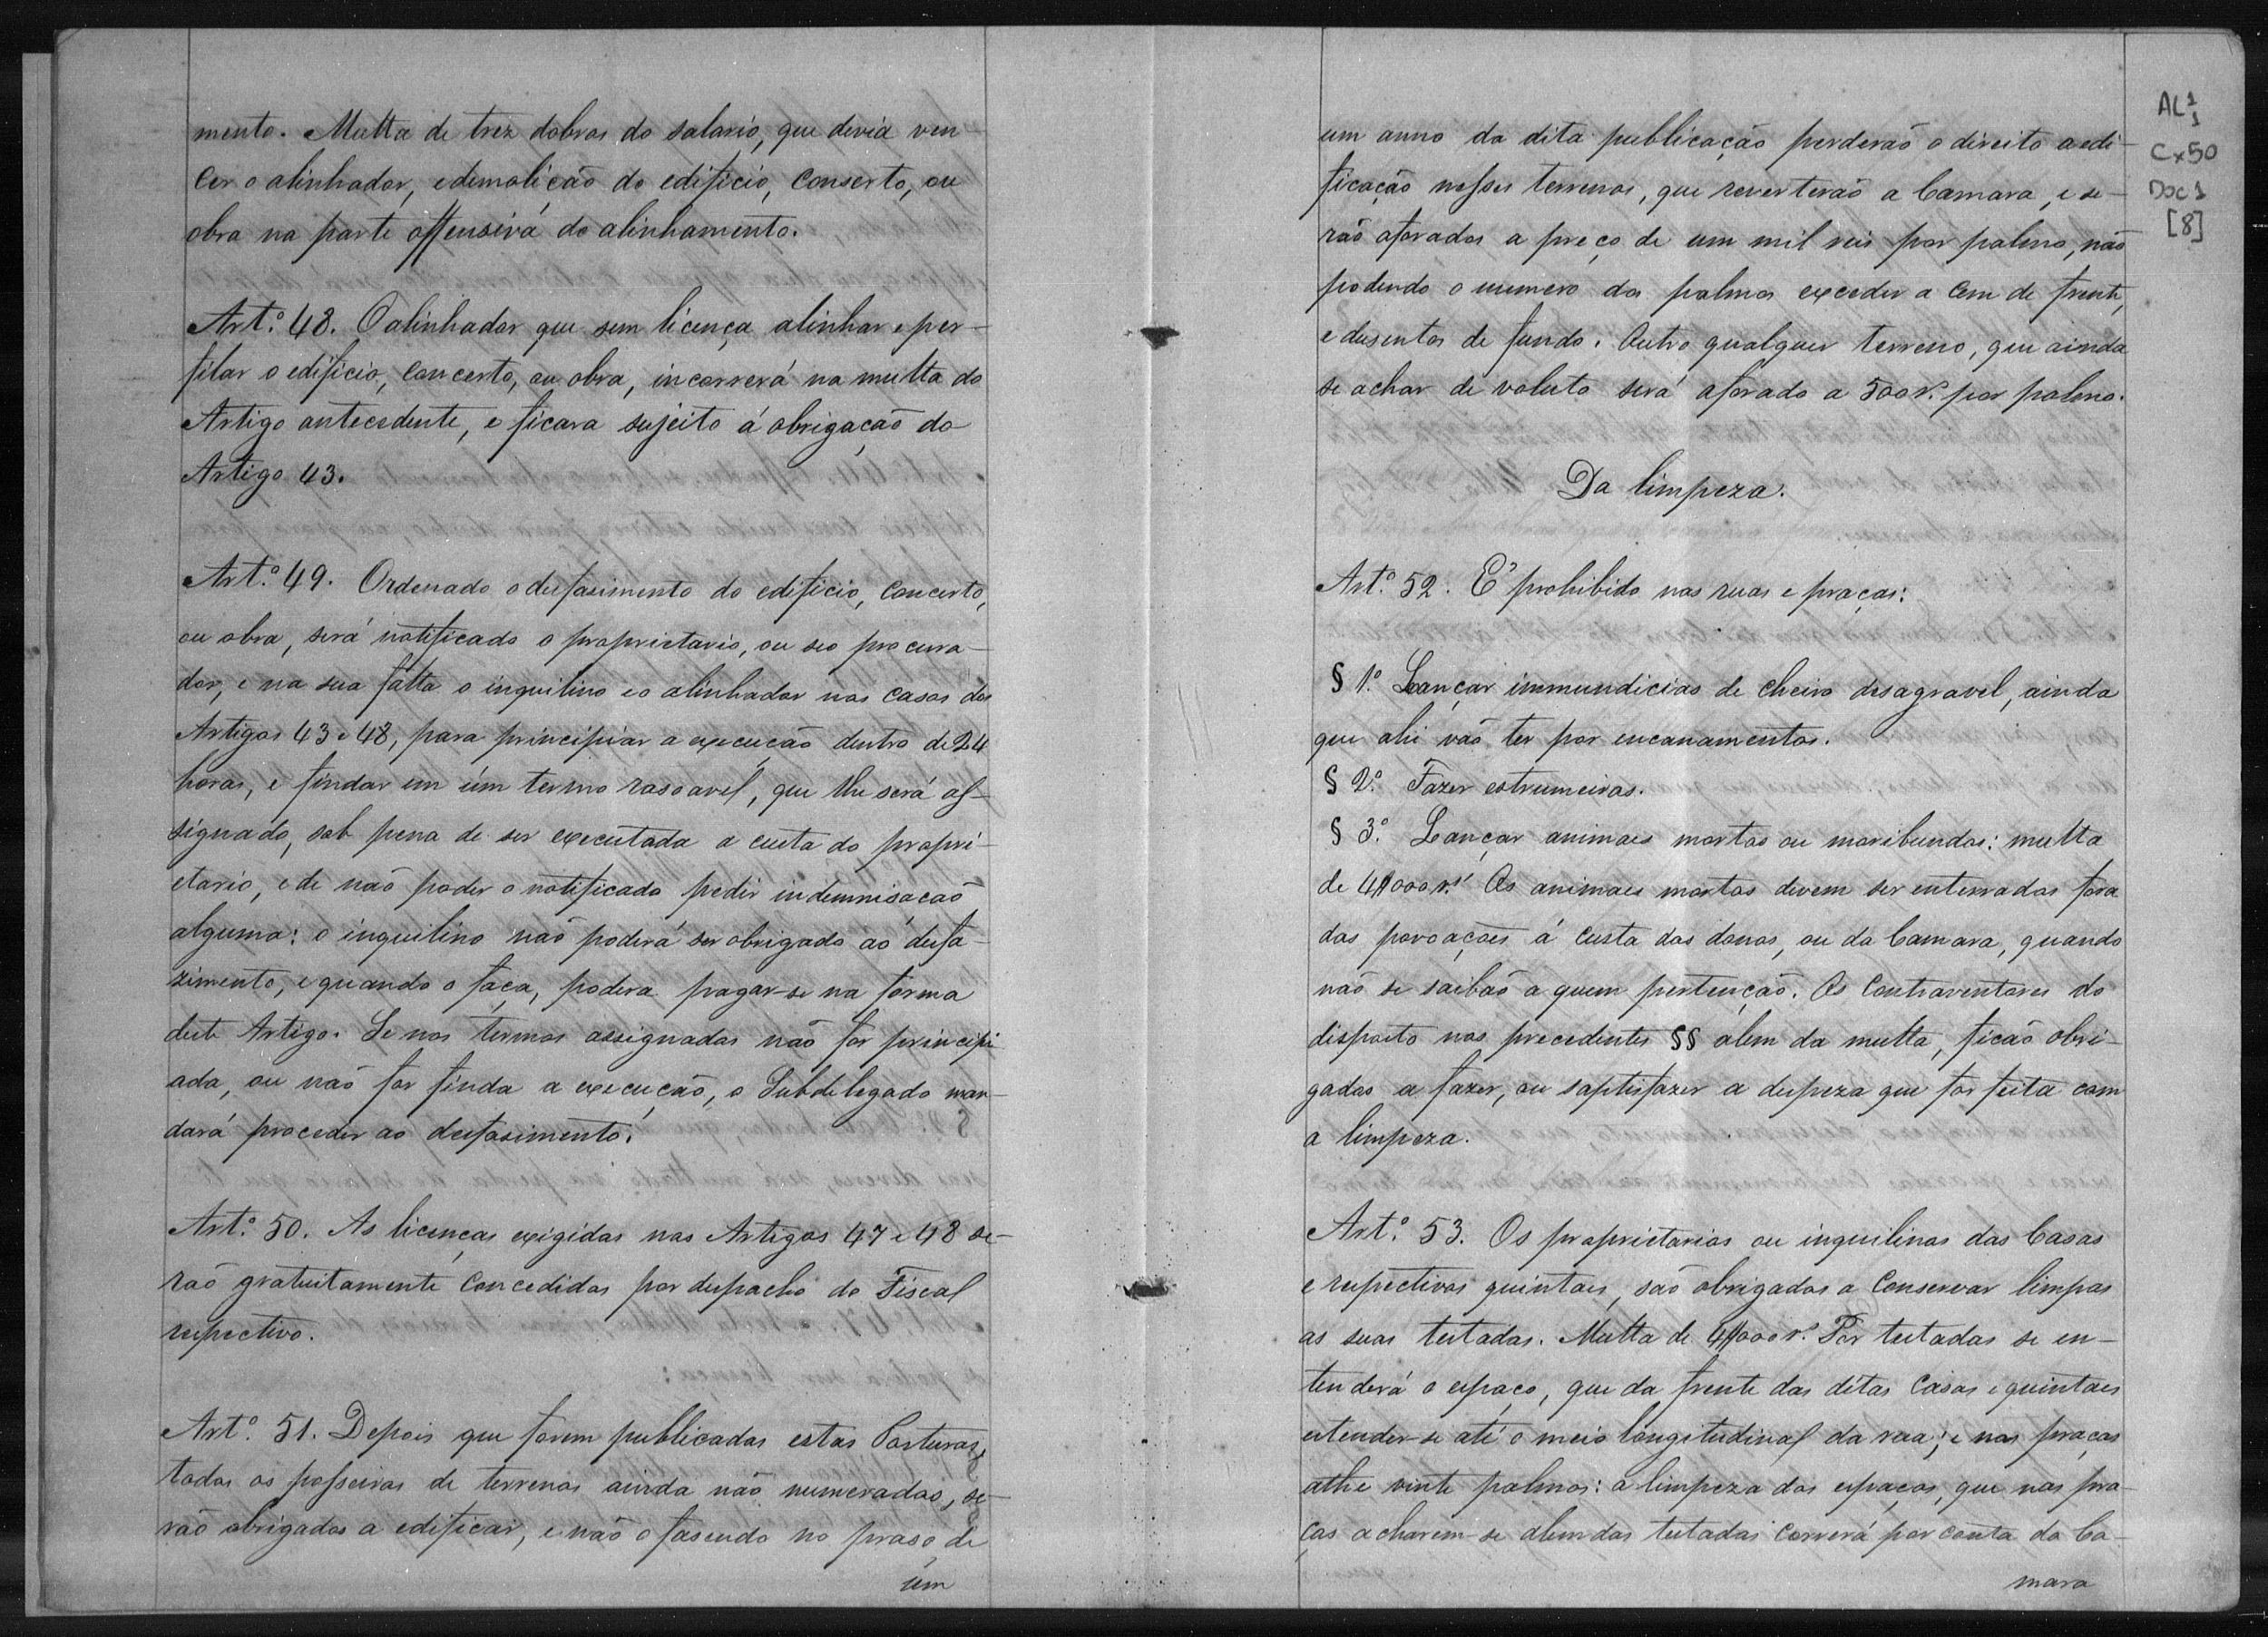 mento. Multa de trez dobros do salario, que devia ven-
cer o alinhador, e demolição do edificio, concerto, ou
obra na parte offensiva do alinhamento.
Art.º 48. O alinhador que sem licença alinhar e per-
filar o edificio, concerto, ou obra, incorrerá na multa do
Artigo antecedente, e ficara sujeito á obrigação do
Artigo 43.
Art.º 49. Ordenado o desfasimento do edificio, concerto,
ou obra, será notificado o proprietario, ou seo procura-
dor, e na sua falta o inquilino e o alinhador nos casos dos
Artigos 43 e 48, para principiar a execução dentro de 24
horas, e findar em um termo rasoavel, que lhe será as-
signado, sob pena de ser executada a custa do propri-
etario, e de não poder o notificado pedir indemnisação
alguma: o inquilino não poderá ser obrigado ao desfa-
zimento, e quando o faça, poderá pagar-se na forma
deste Artigo. Se nos termos assignados não for principi
ada, ou não for finda a execução, o Subdelegado man-
dará proceder ao desfasimento.
Art.º 50. As licenças exigidas nos Artigos 47 e 48 se-
rão gratuitamente concedidas por despacho do Fiscal
respectivo.
Art.º 51. Depois que forem publicadas estas Posturas,
todos os posseiros de terrenos ainda não numerados, se-
rão obrigados a edificar, e não o fasendo no praso de
um
um anno da dita publicação perderão o direito a edi-
ficação nesses terrenos, que reverterão a Camara, e se-
rão aforados a preço de um mil reis por palmo, não
podendo o numero dos palmos exceder a cem de frente,
e dusentos de fundo. Outro qualquer terreno, que ainda
se achar de voluto será aforado a 500 r.s por palmo.
Da limpeza.
Art.º 52. É prohibido nas ruas e praças:
§ 1.º Lançar immundicias de cheiro desagravel, ainda
que ahi vão ter por encanamentos.
§ 2.º Fazer estrumeiras.
§ 3.º Lançar animaes mortos ou moribundos: multa
de 4$000 r.s Os animaes mortos devem ser enterrados fora
das povoações á custa dos donos, ou da Camara, quando
não se saibão a quem pertenção. Os contraventores do
disposto nos precedentes §§ alem da multa, ficão obri-
gados a fazer, ou saptisfazer a despeza que for feita com
a limpeza.
Art.º 53. Os proprietarios ou inquilinos das Casas
e respectivos quintaes, são obrigados a conservar limpas
as suas testadas. Multa de 4$000 r.s Por testadas se en-
tenderá o espaço, que da frente das ditas casas e quintaes
estender-se até o meio longitudinal da rua; e nas praças
athe vinte palmos: a limpeza dos espaços, que nas pra-
ças acharem-se alem das testadas correrá por conta da Ca-
mara
AL1
1
Cx50
Doc 1
[8]